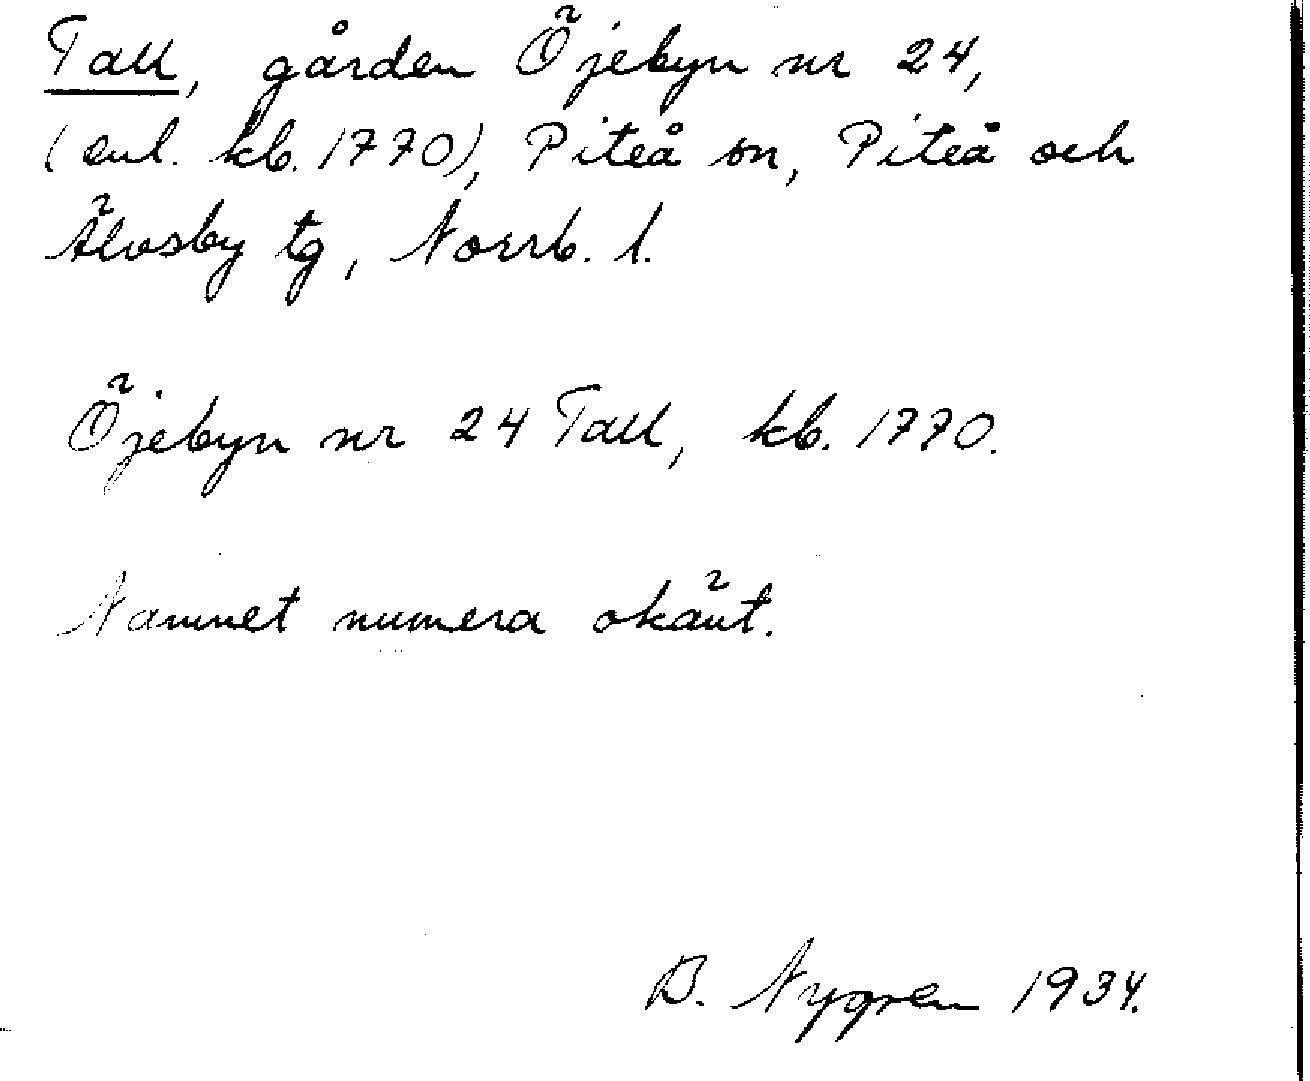 Tall, gården Öjebyn nr 24,
(enl. kb. 1770), Piteå sn, Piteå och
Älvsby tg, Norrb. l.
Öjebyn nr 24 Tall, kb. 1770.
Namnet numera okänt.
B. Nygren 1934.